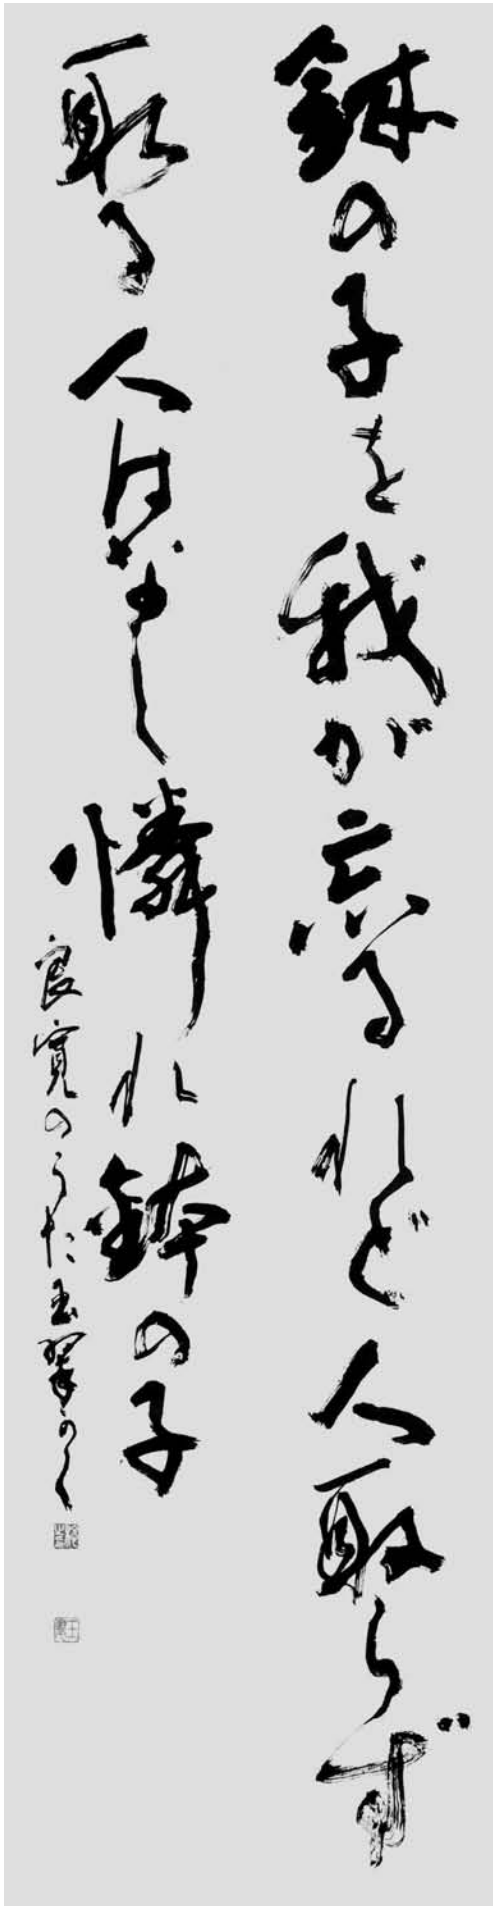 鉢の子を我が忘るれど人取らず
取る人はなし憐れ鉢の子
良寛のうた玉翠かく